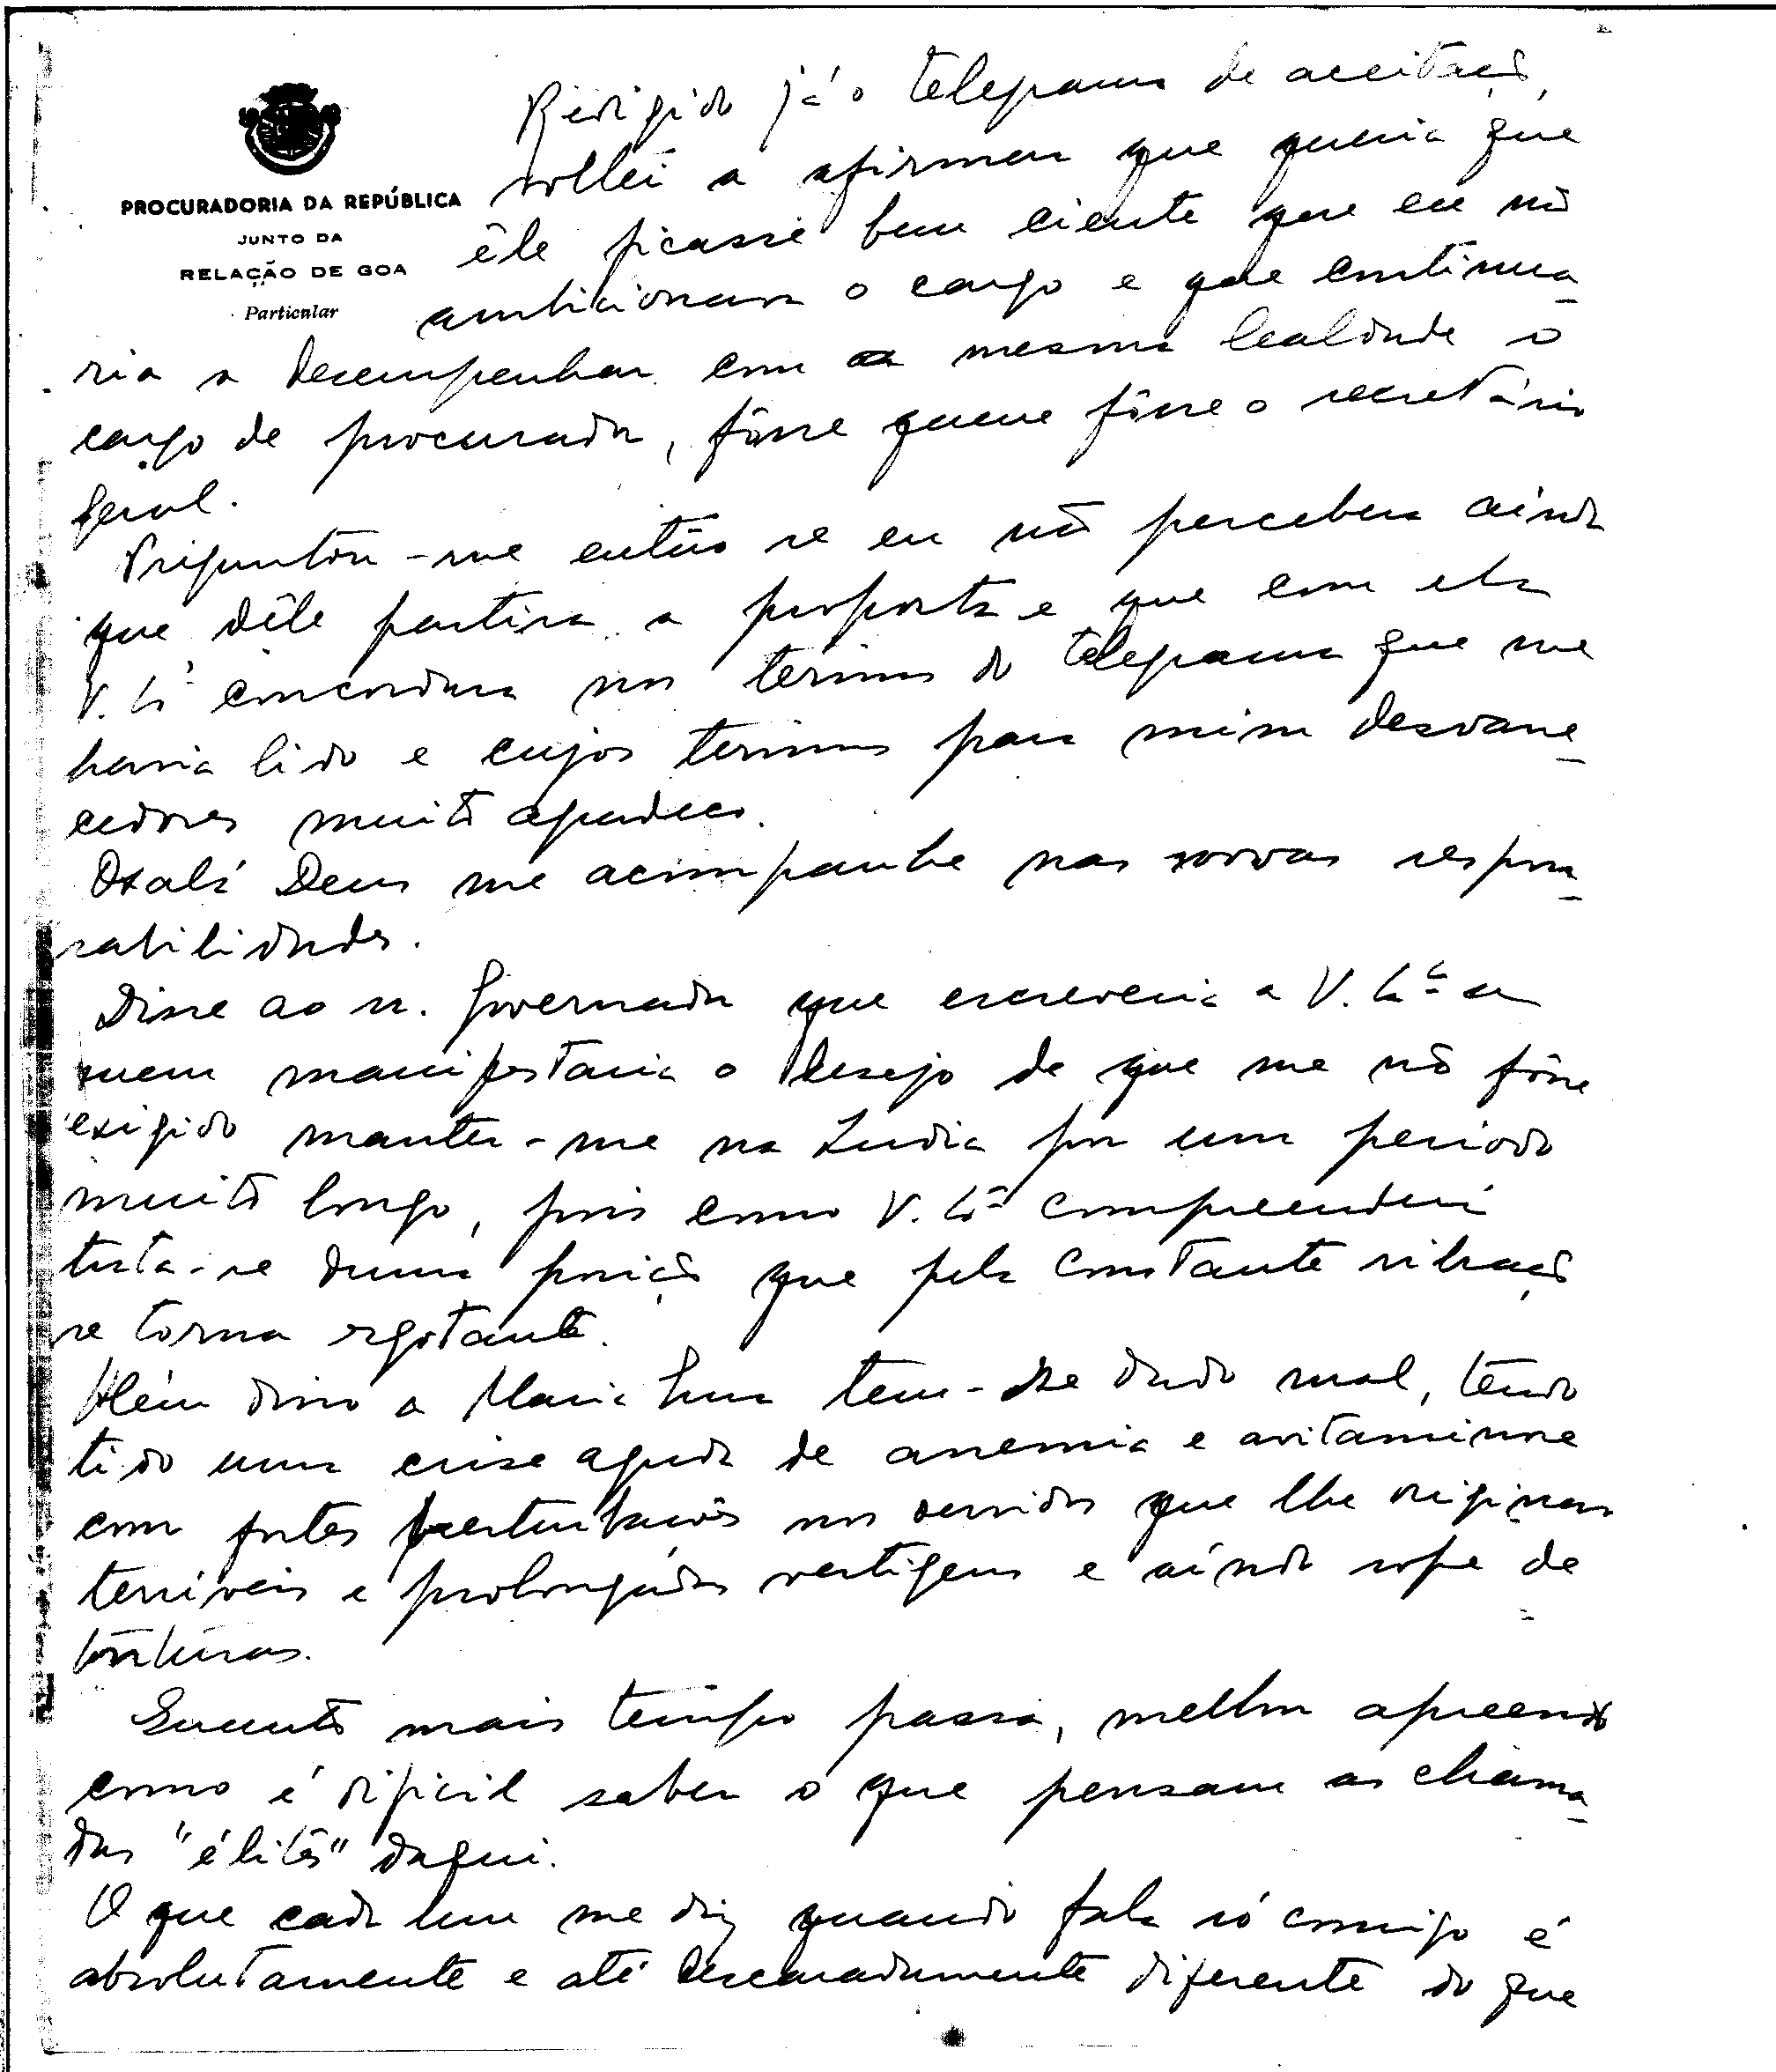 PROCURADORIA DA REPÚBLICA
JUNTO DA
RELAÇÃO DE GOA
Particular
Redigido já o telegrama de aceitação,
voltei a afirmar que queria que
êle ficasse bem ciente que eu não
ambicionava o cargo e que continua-
ria a desempenhar com a mesma lealdade o
cargo de procurador, fôsse quem fôsse o secretário
geral.
Preguntou-me então se eu não percebera ainda
que dêle partira a proposta e que com ela
V. Exª concordara nos termos do telegrama que me
havia lido e cujos termos para mim desvane-
cedores muito agradeço.
Oxalá Deus me acompanhe nas novas respon-
sabilidades.
Disse ao sr. Governador que escreveria a V. Exª a
quem manifestaria o desejo de que me não fôsse
exigido manter-me na India por um periodo
muito longo, pois como V. Exª compreenderá
trata-se duma posição que pela constante vibração
se torna esgotante.
Além disso a Maria tem-se dado mal, tendo
tido uma crise aguda de anemia e avitaminose
com fortes perturbações nos ouvidos que lhe originam
terríveis e prolongadas vertigens e ainda sofre de
tonturas.
Quanto mais tempo passa, melhor apreendo
como é dificil saber o que pensam as chama-
das "élites" daqui.
O que cada um me diz quando fala só comigo é
absolutamente e até descaradamente diferente do que